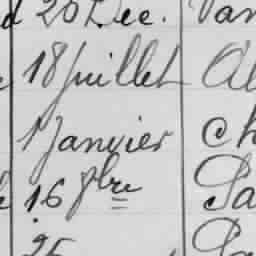 d 20 Dec. Van
18 Juillet Al
1 Janvier Ch
16 8bre Sa
25